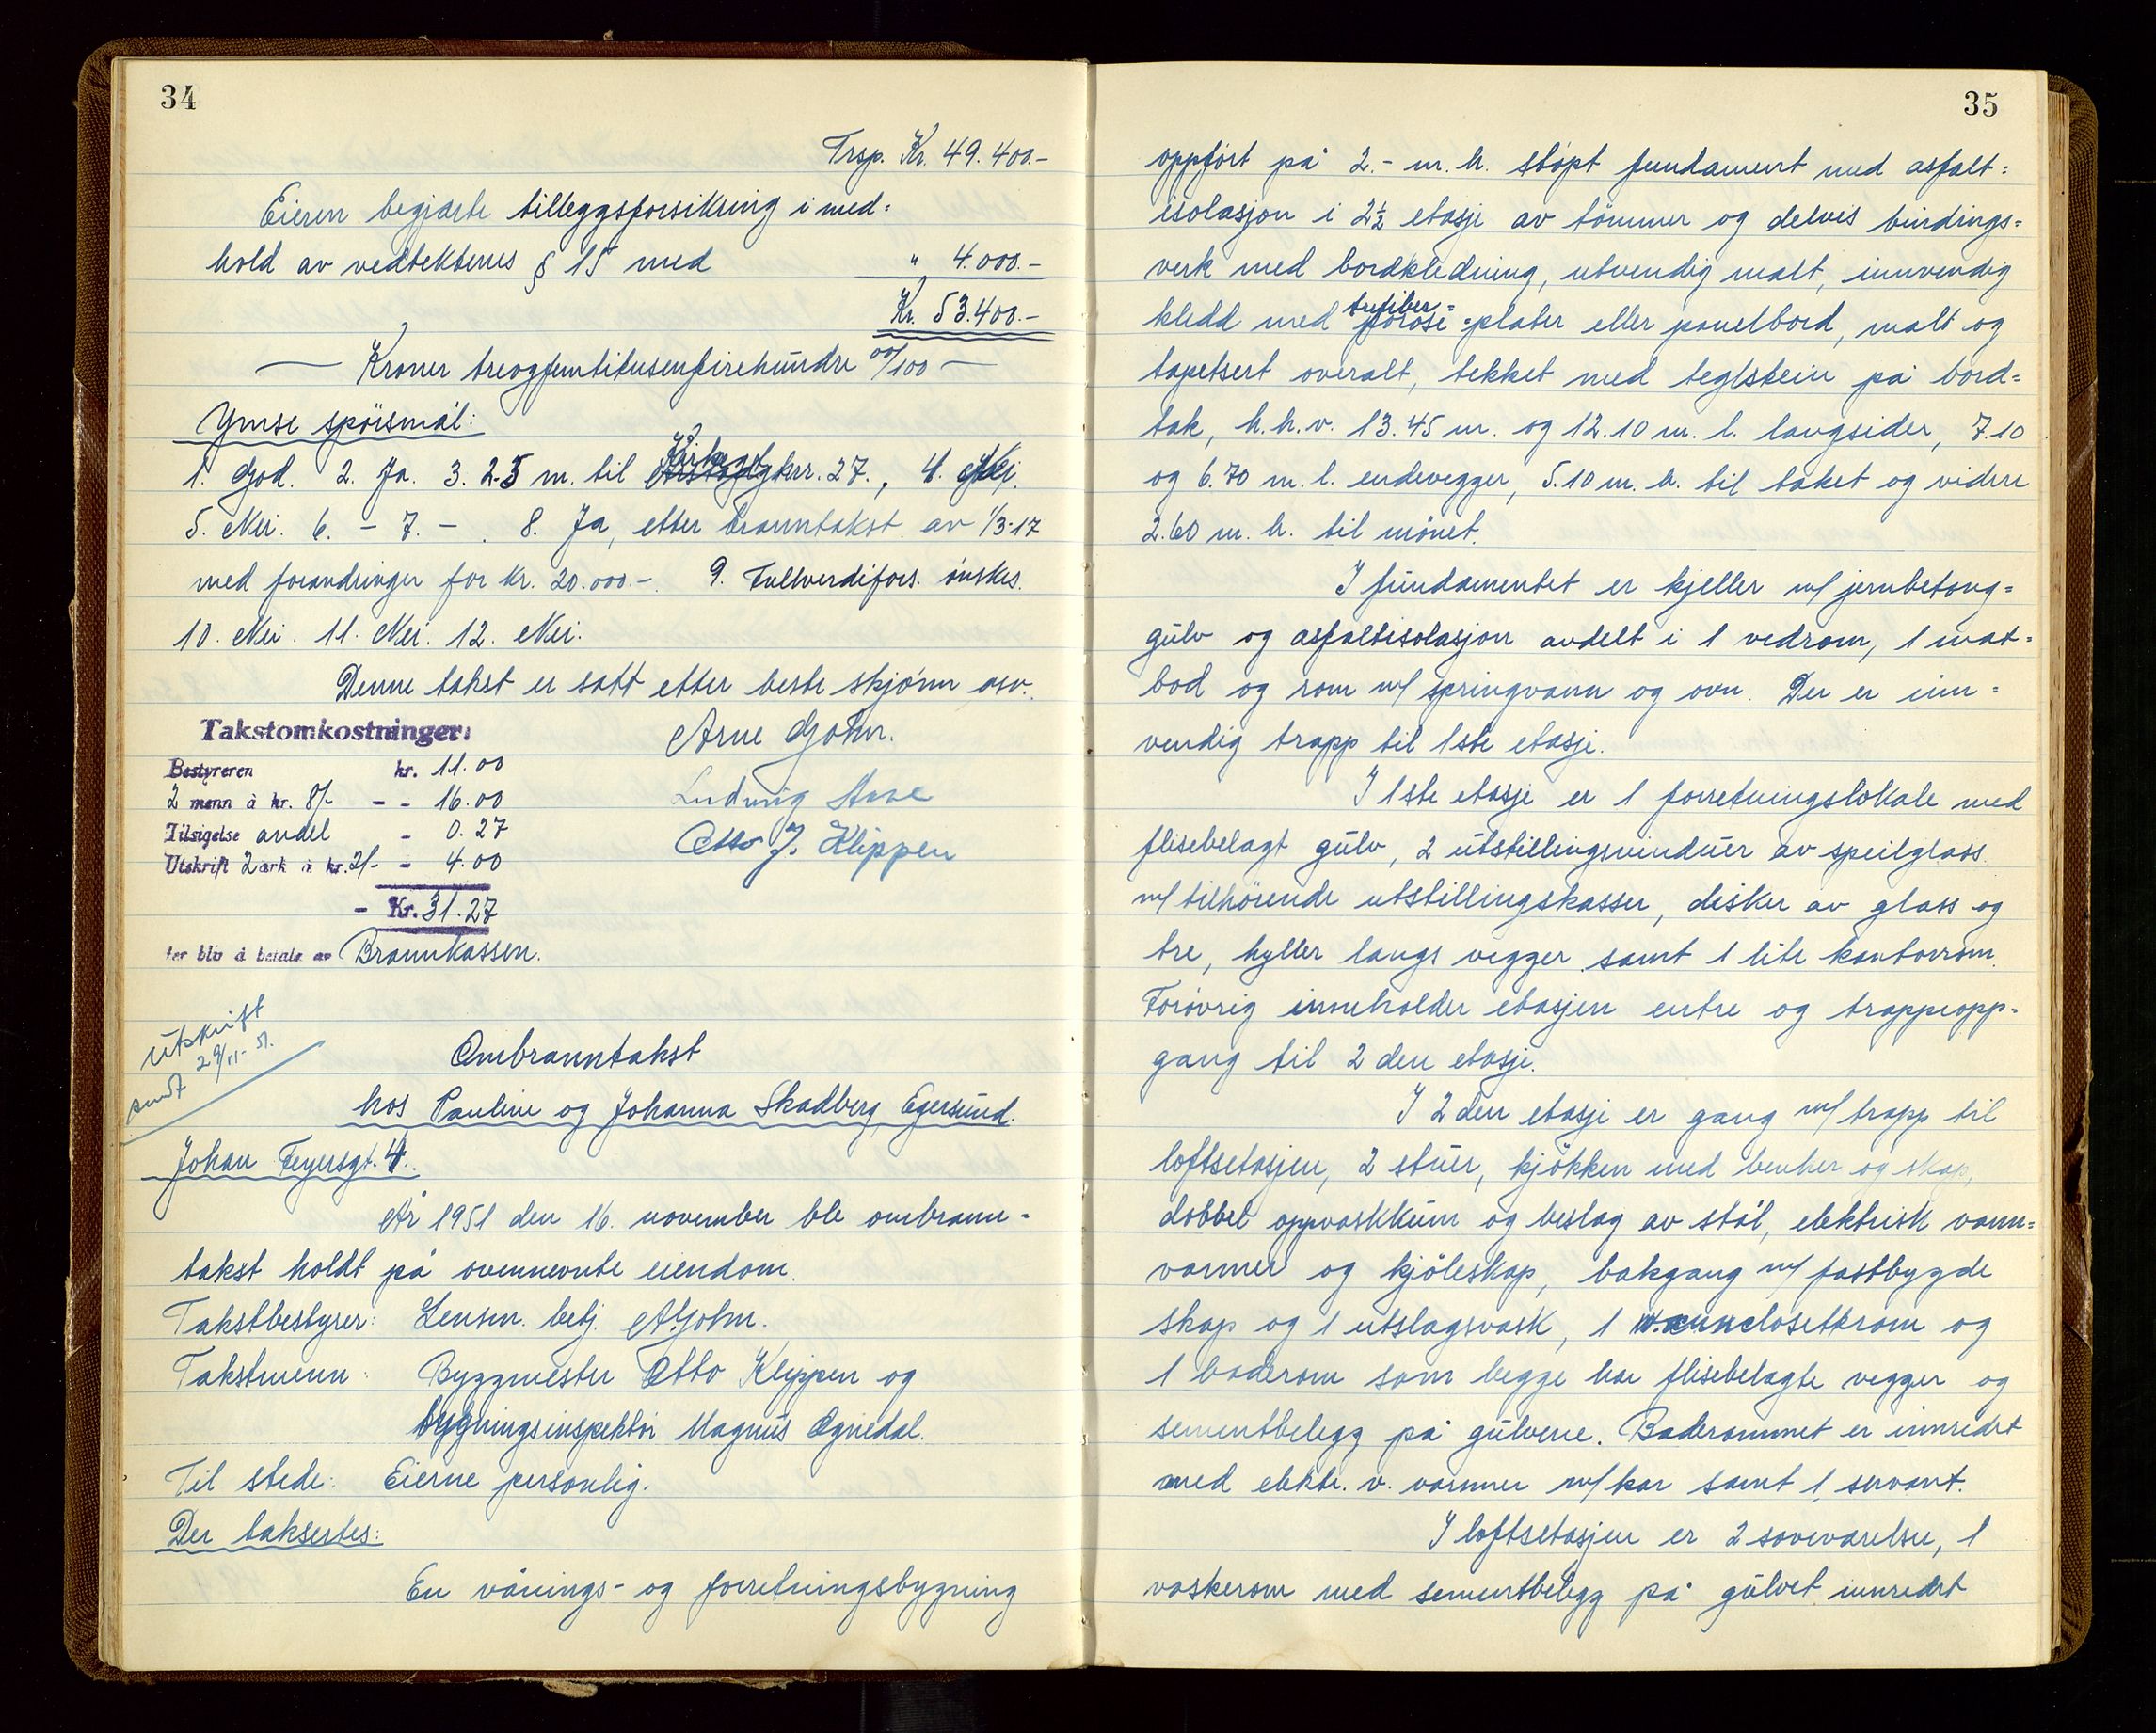 34
Trsp. Kr. 49.400.-
Eieren begjærte tilleggsforsikring i med=
hold av vedtektenes § 15 med " 4.000.-
Kr. 53.400.-
— Kroner treogfemtitusenfirehundre 00/100 —
Ymse spörsmål:
1. God. 2. Ja. 3. 2.5 m. til Kirkegt. nr. 27., 4. Nei.
5. Nei. 6. - 7. - . 8. Ja, etter branntakst av 1/3-17
med forandringer for kr. 20.000.- 9. Fullverdifors. önskes.
10. Nei. 11. Nei. 12. Nei.
Denne takst er satt etter beste skjönn osv.
Takstomkostninger:
Arne Gohn.
Bestyreren kr. 11.00
Ludvig Aase
2 menn à kr. 8/- - - 16.00
Tilsigelse andel - 0.27
Otto J. Klippen
Utskrift 2 ark à kr. 2/- - 4.00
- Kr. 31.27
ter bliv å betale av Brannkassen.
Utskrift
sendt 29/11-51.
Ombranntakst
hos Pauline og Johanna Skadberg, Egersund.
Johan Feyersgt. 4.
År 1951 den 16. november ble ombrann-
takst holdt på ovennevnte eiendom.
Takstbestyrer: Lensm. betj. A. Gohn.
Takstmenn: Byggmester Otto Klippen og
bygningsinspektör Magnus Ognedal.
Til stede: Eierne personlig.
Der taksertes:
En vånings- og forretningsbygning
35
oppfört på 2.- m. h. stöpt fundament med asfalt=
isolasjon i 2½ etasje av tömmer og delvis bindings=
verk med bordkledning, utvendig malt, innvendig
trefiber=
kledd med poröse =plater eller panelbord, malt og
tapetsert overalt, tekket med teglstein på bord=
tak, h.h.v. 13.45 m. og 12.10 m. l. langsider, 7.10
og 6.70 m. l. endevegger, 5.10 m. h. til taket og videre
2.60 m. h. til mönet.
I fundamentet er kjeller m/ jernbetong=
gulv og asfaltisolasjon avdelt i 1 vedrom, 1 mat=
bod og rom m/ springvann og ovn. Der er inn=
vendig trapp til 1ste etasje.
I 1ste etasje er 1 forretningslokale med
flisebelagt gulv, 2 utstillingsvinduer av speilglass
m/ tilhörende utstillingskasser, disker av glass og
tre, hyller langs vegger samt 1 lite kontorrom.
Forövrig inneholder etasjen entre og trappeopp-
gang til 2 den etasje.
I 2 den etasje er gang m/ trapp til
loftsetasjen, 2 stuer, kjökken med benker og skap,
dobbel oppvaskkum og beslag av stål, elektrisk vann=
varmer og kjöleskap, bakgang m/ fastbygde
skap og 1 utslagsvask, 1 vannclosettrom og
1 baderom som begge har flisebelagte vegger og
sementbelegg på gulvene. Baderommet er innredet
med elektr. v. varmer m/ kar samt 1 servant.
I loftsetasjen er 2 soveværelser, 1
vaskerom med sementbelegg på gulvet innredet